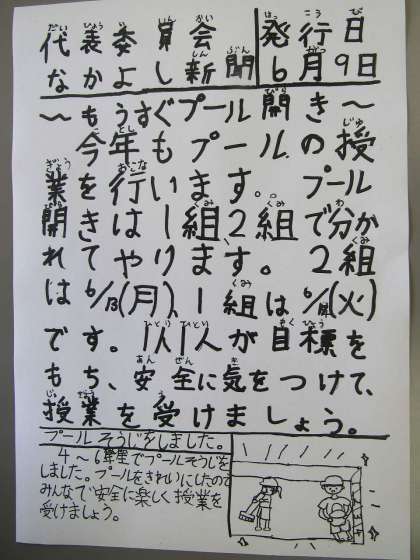 代表委員会
なかよし新聞
発行日
6月9日
〜もうすぐプール開き〜
今年もプールの授
業を行います。プール
開きは1組、2組で分か
れてやります。2組
は6/13(月)、1組は6/14(火)
です。1人1人が目標を
もち、安全に気をつけて、
授業を受けましょう。
プールそうじをしました。
4〜6年生でプールそうじを
しました。プールをきれいにしたので
みんなで安全に楽しく授業を
受けましょう。